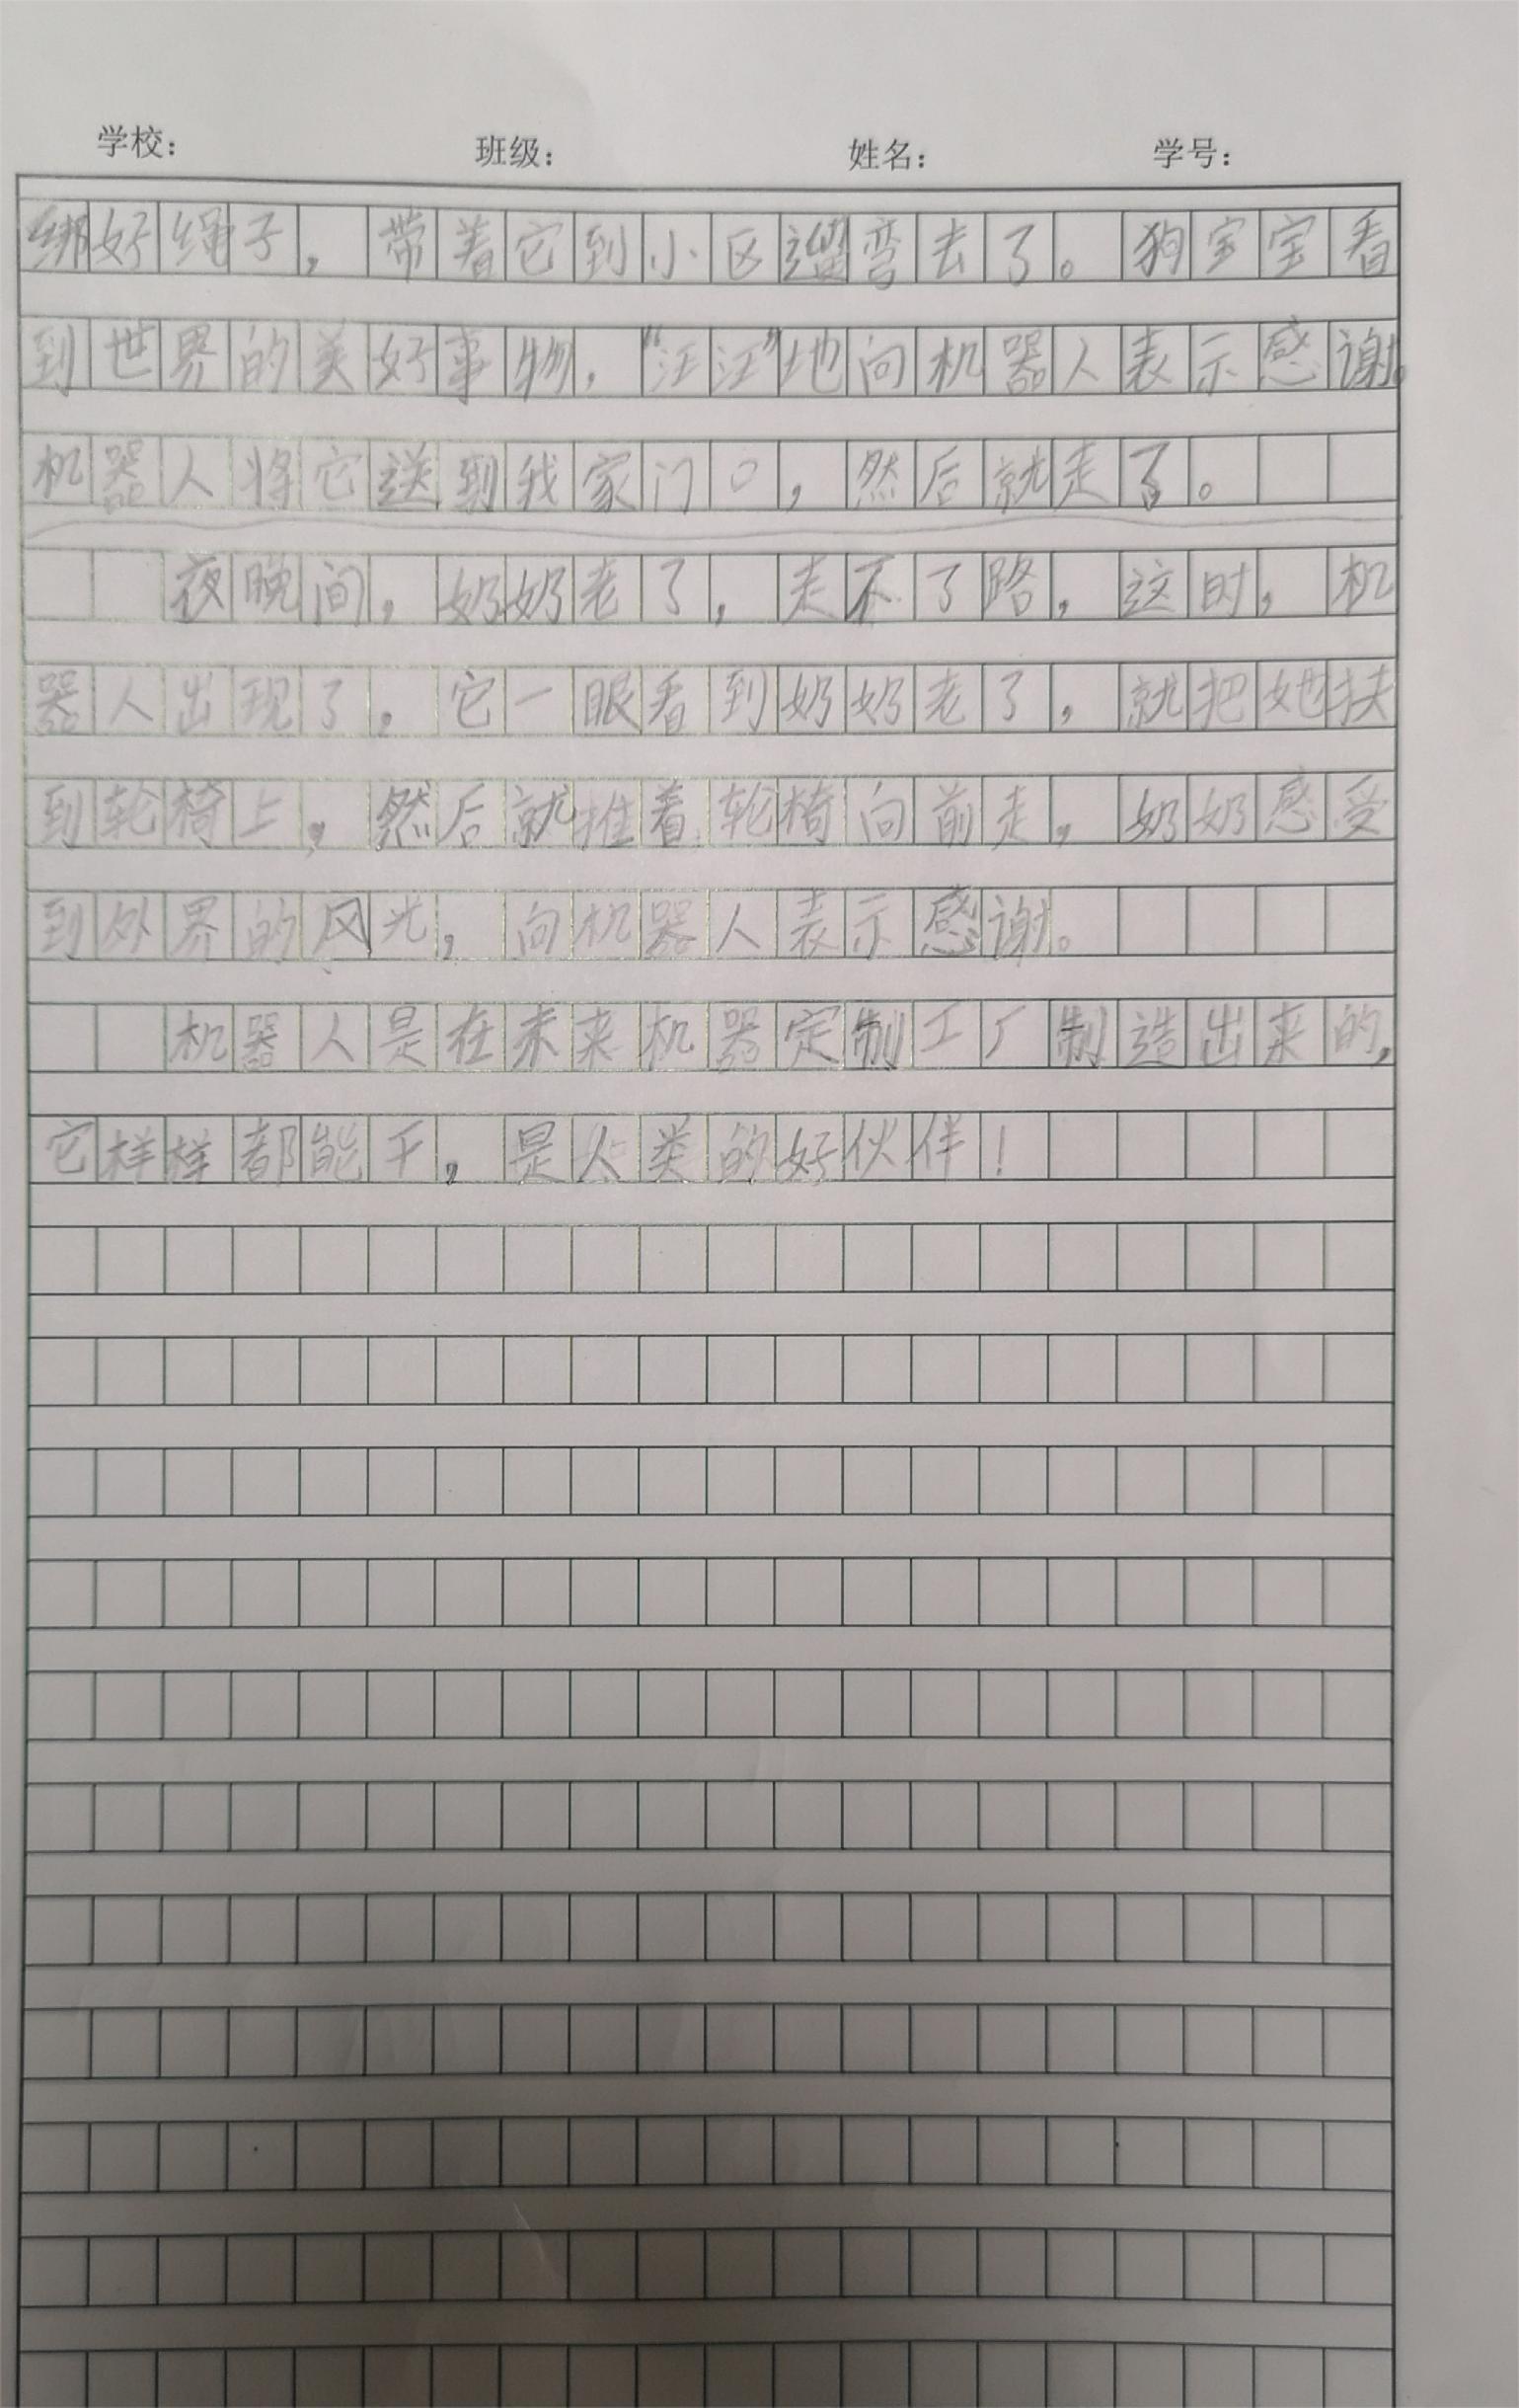 学校： 班级： 姓名： 学号：
绑好绳子，带着它到小区遛弯去了。狗宝宝看
到世界的美好事物，“汪汪”地向机器人表示感谢。
机器人将它送到我家门口，然后就走了。
夜晚间，奶奶老了，走不了路，这时，机
器人出现了，它一眼看到奶奶老了，就把她扶
到轮椅上，然后就推着轮椅向前走，奶奶感受
到外界的风光，向机器人表示感谢。
机器人是在未来机器定制工厂制造出来的，
它样样都能干，是人类的好伙伴！